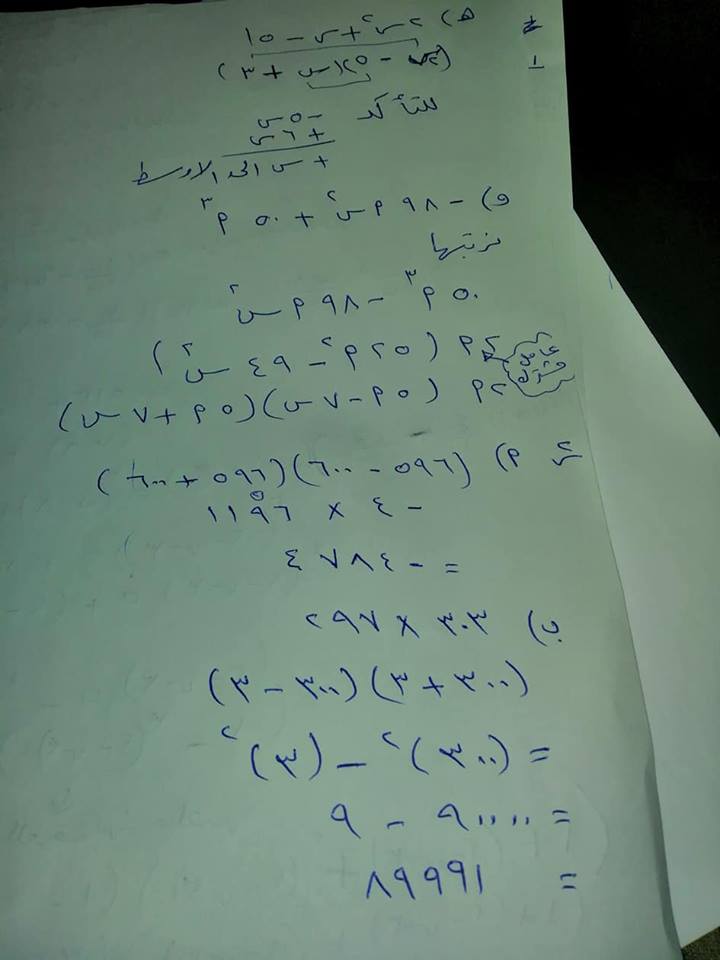 هـ) ٢س² + س − ١٥
(٢س − ٥)(س + ٣)
للتأكد −٥س
+ ٦س
+ س الحد الاوسط
و) − ٩٨ م س² + ٥٠ م³
نرتبها
٥٠ م³ − ٩٨ م س²
٢م (٢٥ م² − ٤٩ س²)
٢م (٥م − ٧س)(٥م + ٧س)
م) (٥٩٦ − ٦٠٠)(٥٩٦ + ٦٠٠)
− ٤ × ١١٩٦
= − ٤٧٨٤
ب) ٣٠٣ × ٢٩٧
(٣٠٠ + ٣)(٣٠٠ − ٣)
= (٣٠٠)² − (٣)²
= ٩٠٠٠٠ − ٩
= ٨٩٩٩١